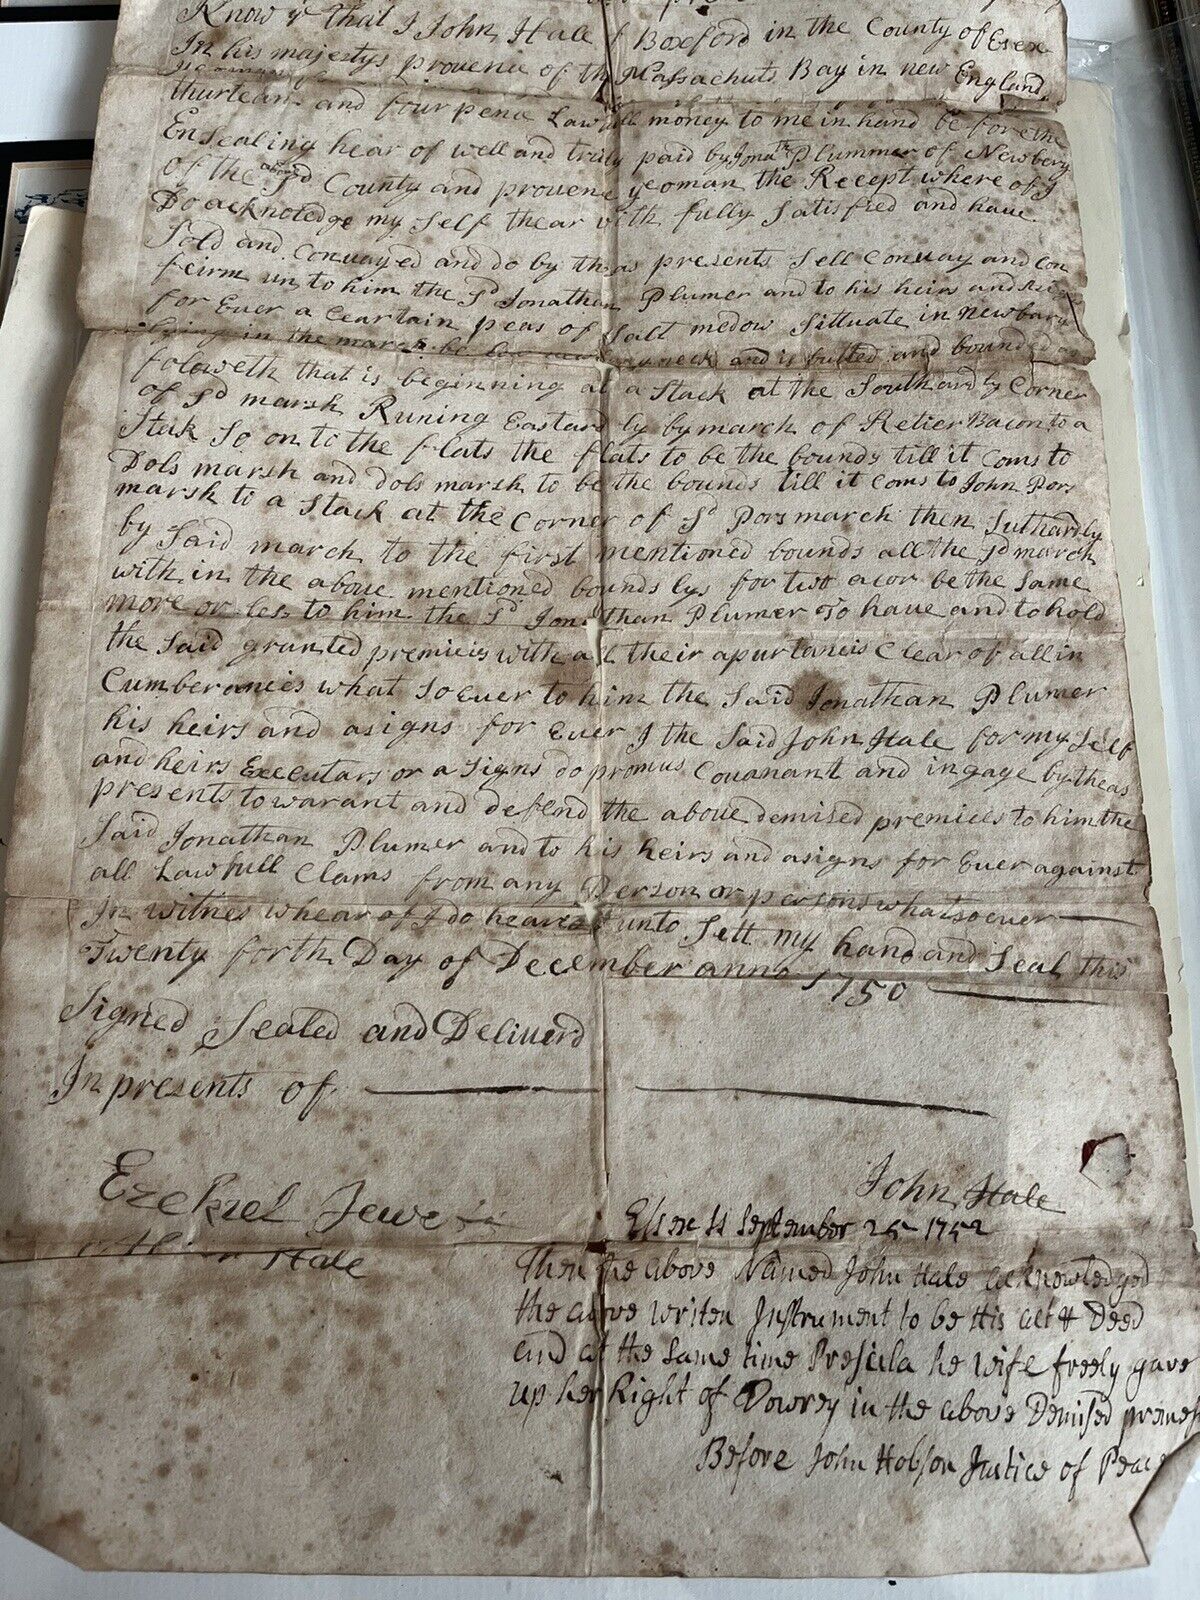 Know ye that I John Hale of Boxford in the County of Esex
In his majestys provence of the Massachuts Bay in new England
thurtean and four penc Lawfull money to me in hand before the
Ensealing hear of well and truly paid by Jonath Plummer of Newbery
of the above sd County and provenc yeoman the Recept where of I
Do acknoledge my Self thear with fully Satisfied and have
Sold and Convayed and do by theas presents Sell Convay and Con
feirm un to him the Sd Jonathan Plumer and to his heirs and
for Ever a Ceartain peas of Salt medow Sittuate in newbary
lying in the marsh neck and is butted and bounded as
foloweth that is beginning at a Stack at the Southardly Corner
of Sd marsh Runing Eastardly by march of Bacon to a
Stak So on to the flats the flats to be the bounds till it Coms to
Dols marsh and dols marsh to be the bounds till it Coms to John Pors
marsh to a Stack at the Corner of Sd Pors march then Suthardly
by Said march to the first mentioned bounds all the sd march
with in the above mentioned bounds lys for two acor be the Same
more or les to him the Sd Jonathan Plumer To have and to hold
the Said granted premicies with all their apurtancis Clear of all in
Cumberancies what So ever to him the Said Jonathan Plumer
his heirs and asigns for Ever I the Said John Hale for my Self
and heirs Execcutars or a Signs do promus Covanant and ingage by theas
presents to warant and defend the above demised premices to him the
Said Jonathan Plumer and to his heirs and asigns for Ever against
all Lawfull Clams from any Person or persons whatsoever
In witnes whear of I do hearunto Sett my hand and Seal this
Twenty forth Day of December anno 1750
Signed Sealed and Deliverd
In presents of
John Hale
Ezekiel
Hale
Essex Ss September 25 1752
Then the above Named John Hale acknowledged
the above writen Instrument to be His act & Deed
and at the Same time Presila he wife freely gave
up her Right of Dowrey in the above Demised
Before John Hobson Justice of Peace